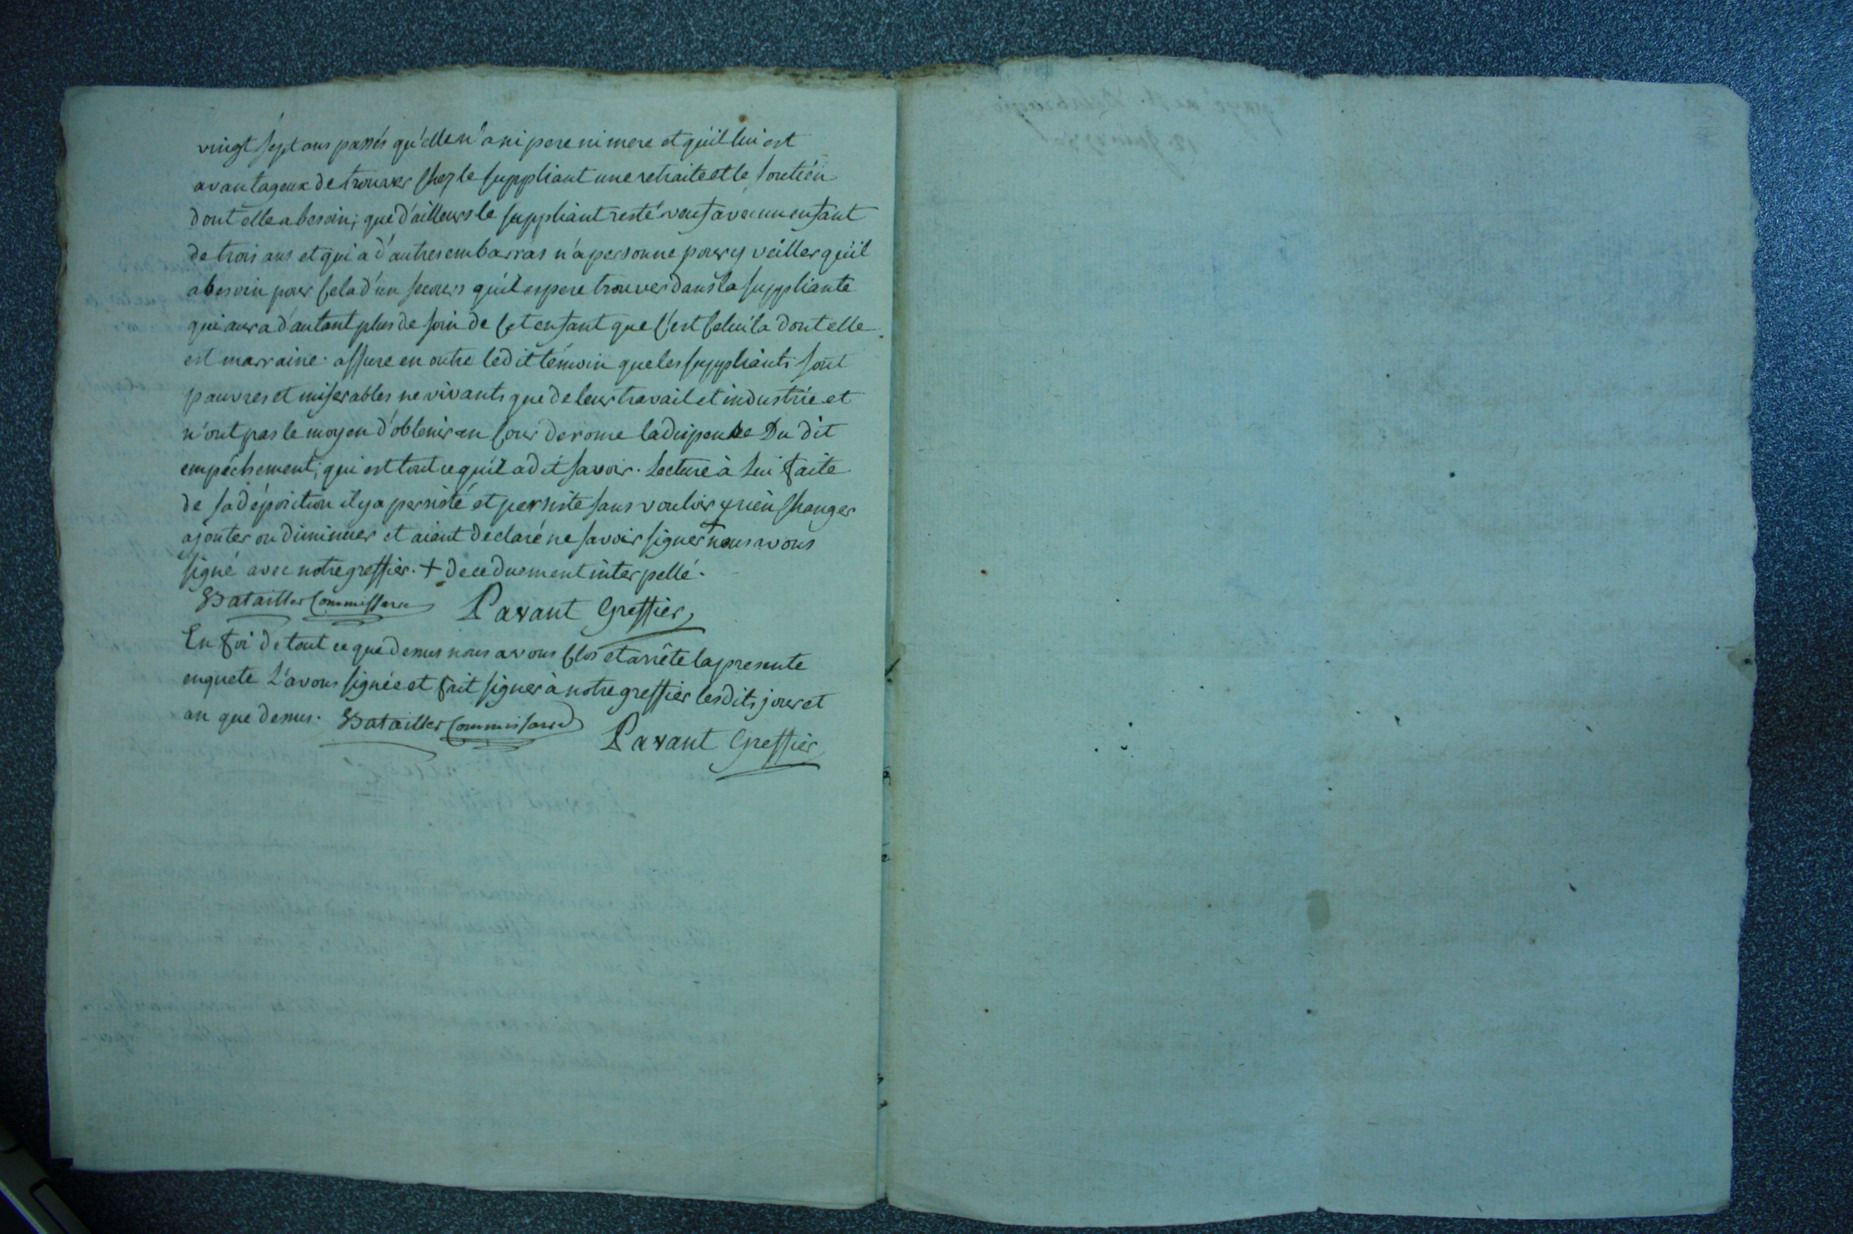 vingt sept ans passés qu'elle n'a ni pere ni mere et qu'il lui est
avantageux de trouver chez le suppliant une retraite et le soutien
dont elle a besoin; que d'ailleurs le suppliant resté veuf avec un enfant
de trois ans et qui a d'autres embarras n'a personne pour y veiller qu'il
a besoin pour cela d'un secours qu'il espere trouver dans la suppliante
qui aura d'autant plus de soin de cet enfant que c'est celui la dont elle
est marraine. assure en outre ledit témoin que les suppliants sont
pauvres et miserables ne vivants que de leur travail et industrie et
n'ont pas le moyen d'obtenir en cour de rome la dispense Du dit
empêchement; qui est tout ce qu'il a dit savoir. Lecture à lui faite
de sa déposition il y a persisté et persiste sans vouloir y rien changer
ajouter ou diminuer et aient déclaré ne savoir signer + nous avons
signé avec notre greffier. + de ce duement interpellé.
Batailler Commissaire Pavant Greffier
En foi de tout ce que dessus nous avons clos et arrêté la presente
enquete l'avons signée et fait signer à notre greffier lesdits jour et
an que dessus. Batailler Commissaire
Pavant Greffier